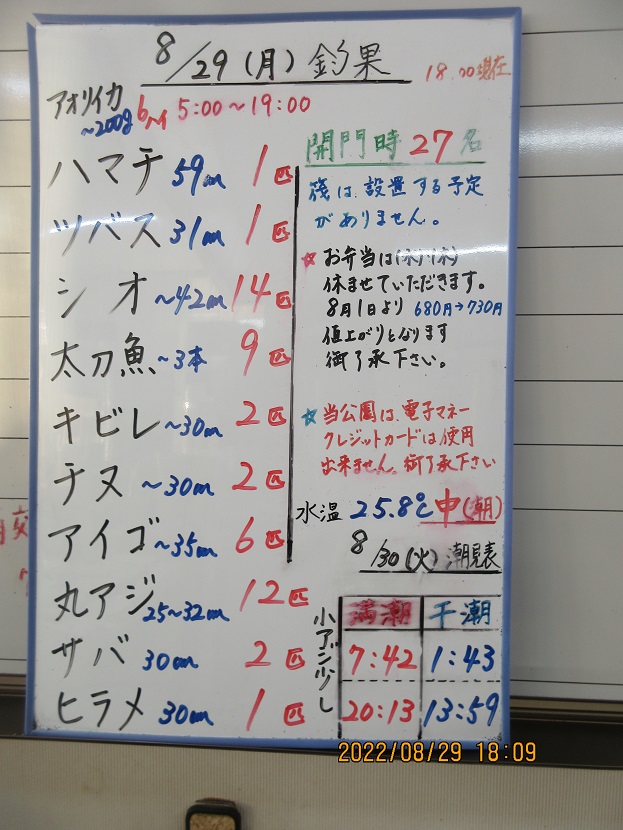 8/29(月)釣果
18:00現在
アオリイカ
~200g 6ハイ 5:00~19:00
ハマチ 59cm 1匹
ツバス 31cm 1匹
シオ ~42cm 14匹
太刀魚 ~3本 9匹
キビレ ~30cm 2匹
チヌ ~30cm 2匹
アイゴ ~35cm 6匹
丸アジ 25~32cm 12匹
サバ 30cm 2匹
ヒラメ 30cm 1匹
小アジ少し
開門時 27名
筏は、設置する予定
がありません。
☆お弁当は(水)(木)
休ませていただきます。
8月1日より 680円→730円
値上がりとなります
御了承下さい。
☆当公園は、電子マネー
クレジットカードは使用
出来ません。御了承下さい
水温 25.8℃ 中(朝)
8/30(火)潮見表
満潮 干潮
7:42 1:43
20:13 13:59
2022/08/29 18:09